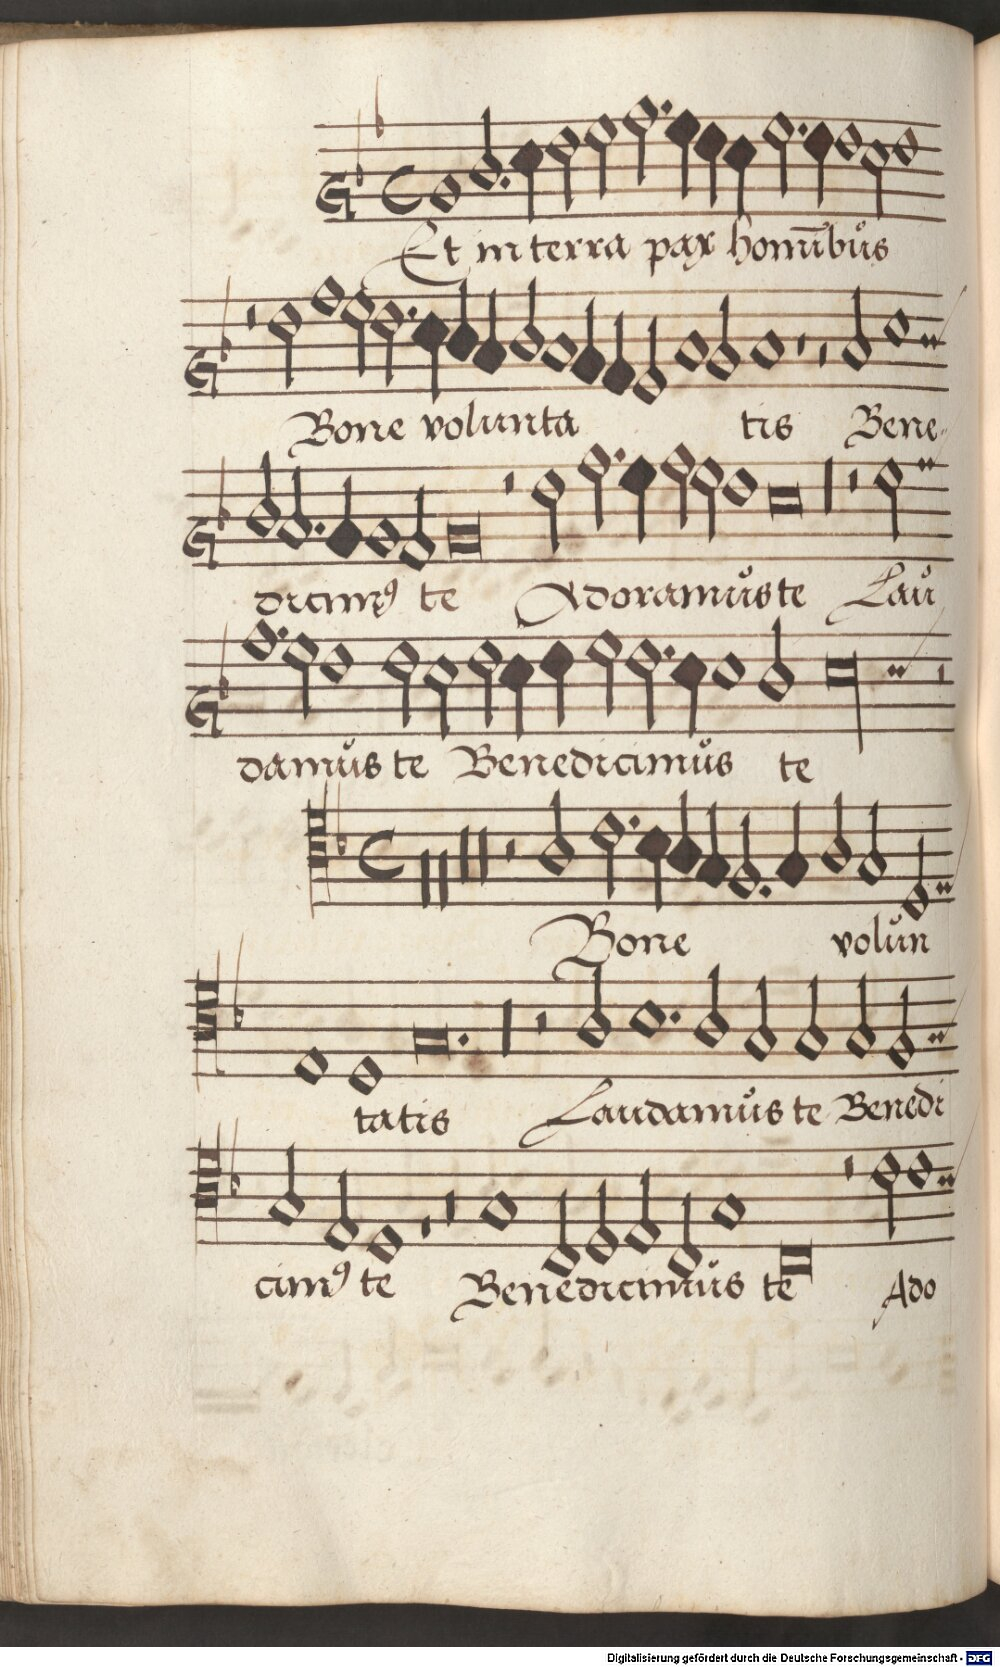 Et in terra pax homībůs
Bone volunta tis Bene
dicimꝰ te Adoramůs te Laů
damůs te Benedicimůs te
Bone volůn
tatis Laudamůs te Benedi
cimꝰ te Benedicimůs te Ado
Digitalisierung gefördert durch die Deutsche Forschungsgemeinschaft - DFG